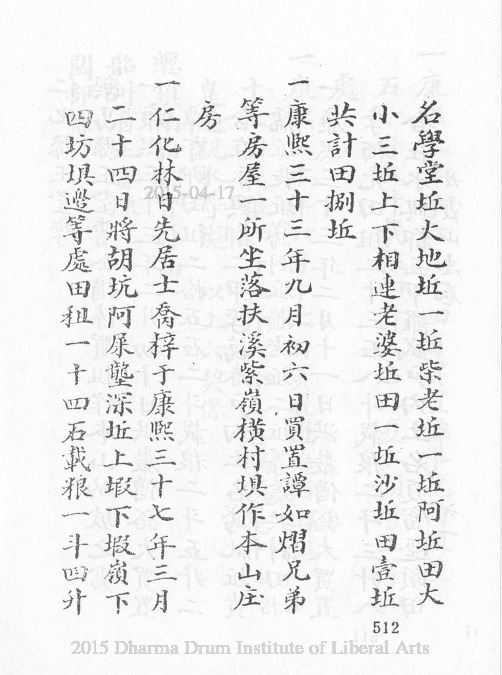 名學堂坵大地坵一坵柴老坵一坵阿坵田大
小三坵上下相連老婆坵田一坵沙坵田壹坵
共計田捌坵
一康熙三十三年九月初六日買置譚如熠兄弟
等房屋一所坐落扶溪紫嶺橫村埧作本山庄
房
一仁化林日先居士喬梓于康熙三十七年三月
二十四日將胡坑阿屎壟深坵上塅下塅嶺下
四坊埧邊等處田租一十四石載粮一斗四升
512
2015-04-17
2015 Dharma Drum Institute of Liberal Arts